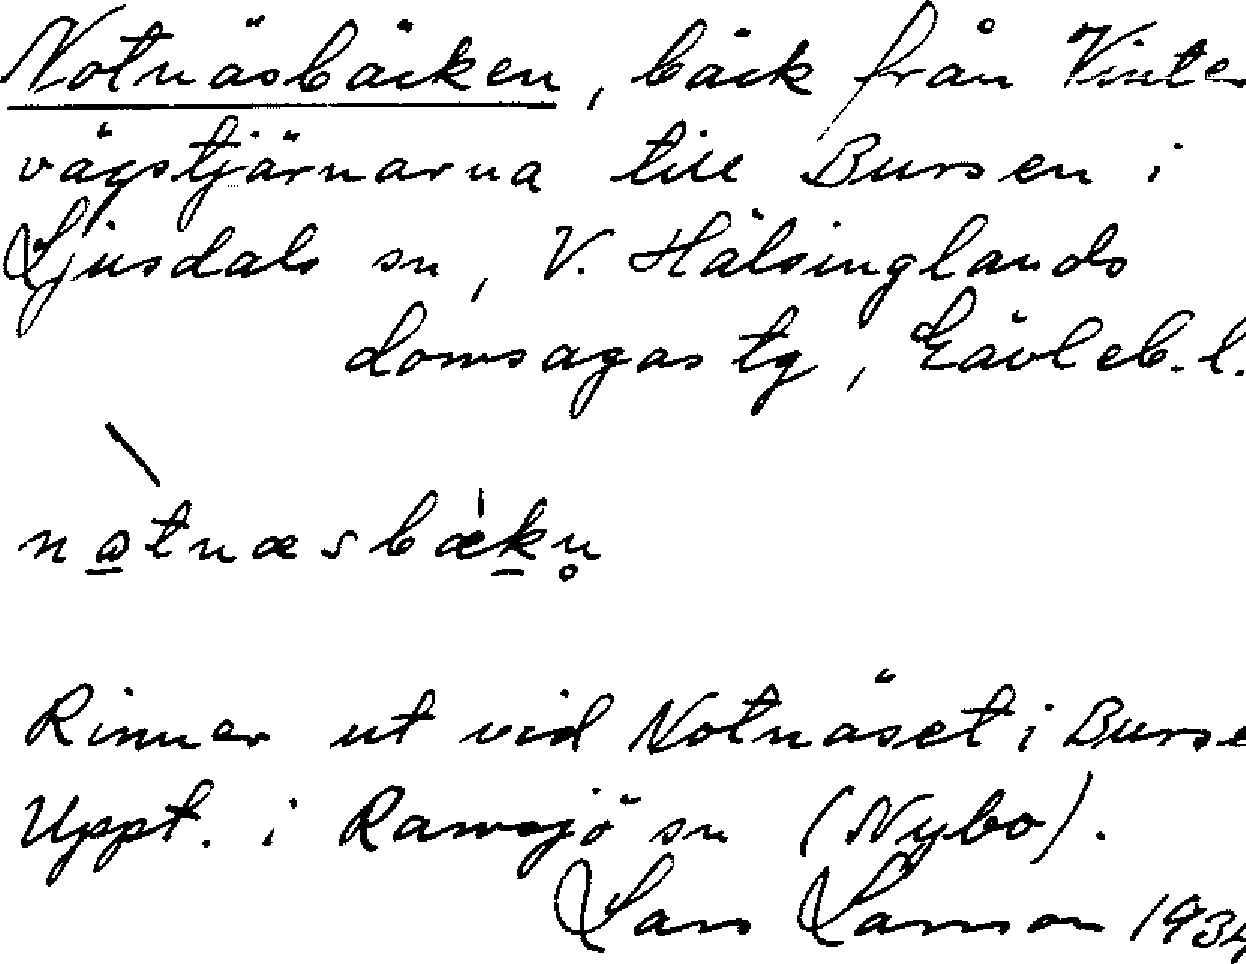 Notnäsbäcken, bäck från Vinter
vägstjärnarna till Bursen i
Ljusdals sn, V. Hälsinglands
domsagas tg, Gävleb. l.
nɷtnæsbækn̥
Rinner ut vid Notnäset i Burse
Uppt. i Ramsjö sn (Nybo).
Lars Larsson 1934